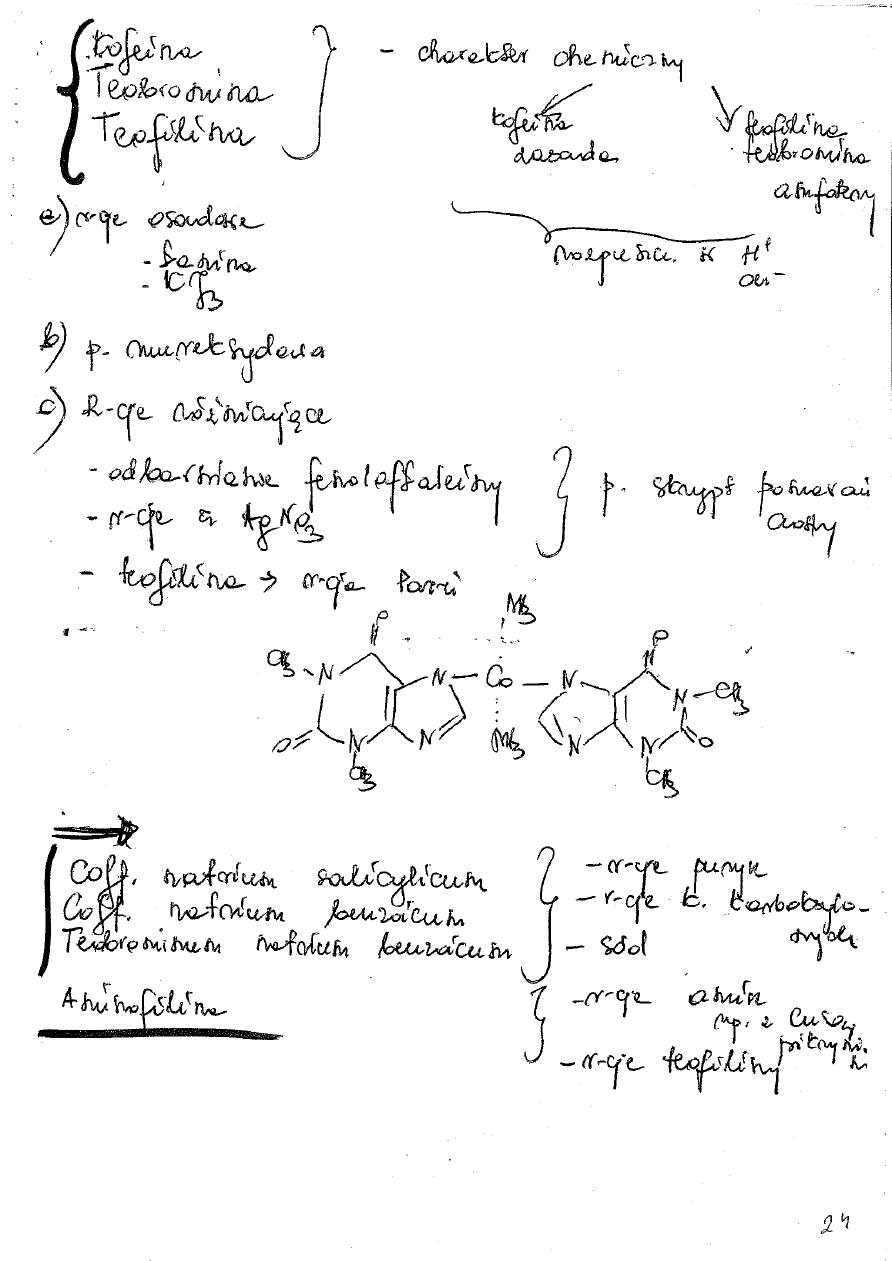 Kofeina
Teobromina
Teofilina
- charakter chemiczny
kofeina
zasada
teofilina
teobromina
amfotery
rozpuszcz. w H+
OH-
a) r-cje osadowe
- tanina
- KJ3
b) p. mureksydowa
c) R-cje różniące
- odbarwianie fenoloftaleiny
- r-cje z AgNO3
p. skrypt pomarań
czowy
- teofilina → r-cja Parri
NH3
O
O
CH3
N
N
Co
N
N
CH3
O
N
N
NH3
N
N
O
CH3
CH3
Coff. natrium salicylicum
Coff. natrium benzoicum
Teobrominum natrium benzoicum
- r-cje puryn
- r-cje k. karboksylo-
wych
- sód
Aminofilina
- r-cje amin
np. z CuSO4
pikryno.
- r-cje teofiliny
24